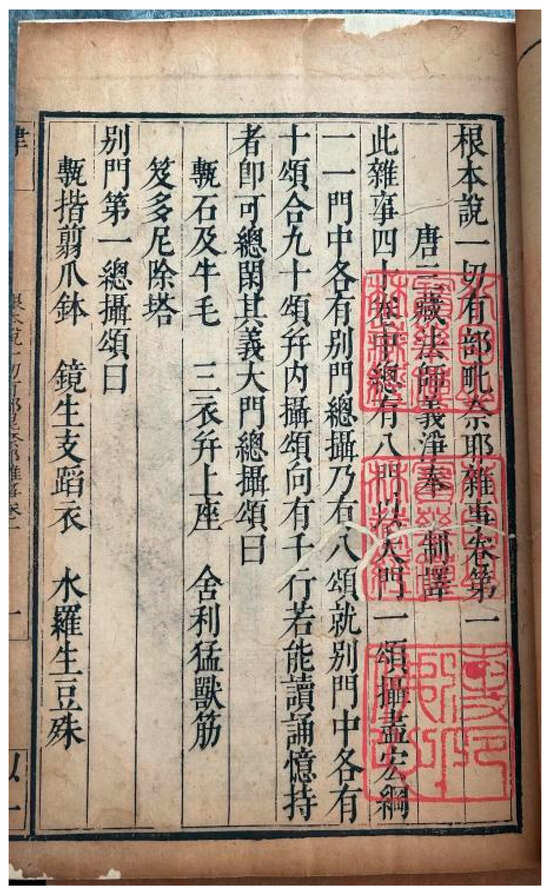 根本說一切有部毗奈耶雜事卷第一
唐三藏法師義淨奉 制譯
此雜事四十卷中總有八門以大門一頌攝盡宏綱
一一門中各有別門總攝乃有八頌就別門中各有
十頌合九十頌幷內攝頌向有千行若能讀誦憶持
者卽可總閑其義大門總攝頌曰
甎石及牛毛 三衣幷上座 舍利猛獸筋
笈多尼除塔
別門第一總攝頌曰
甎揩翦爪鉢 鏡生支蹈衣 水羅生豆殊
律
根本說一切有部毗奈耶雜事卷一
一